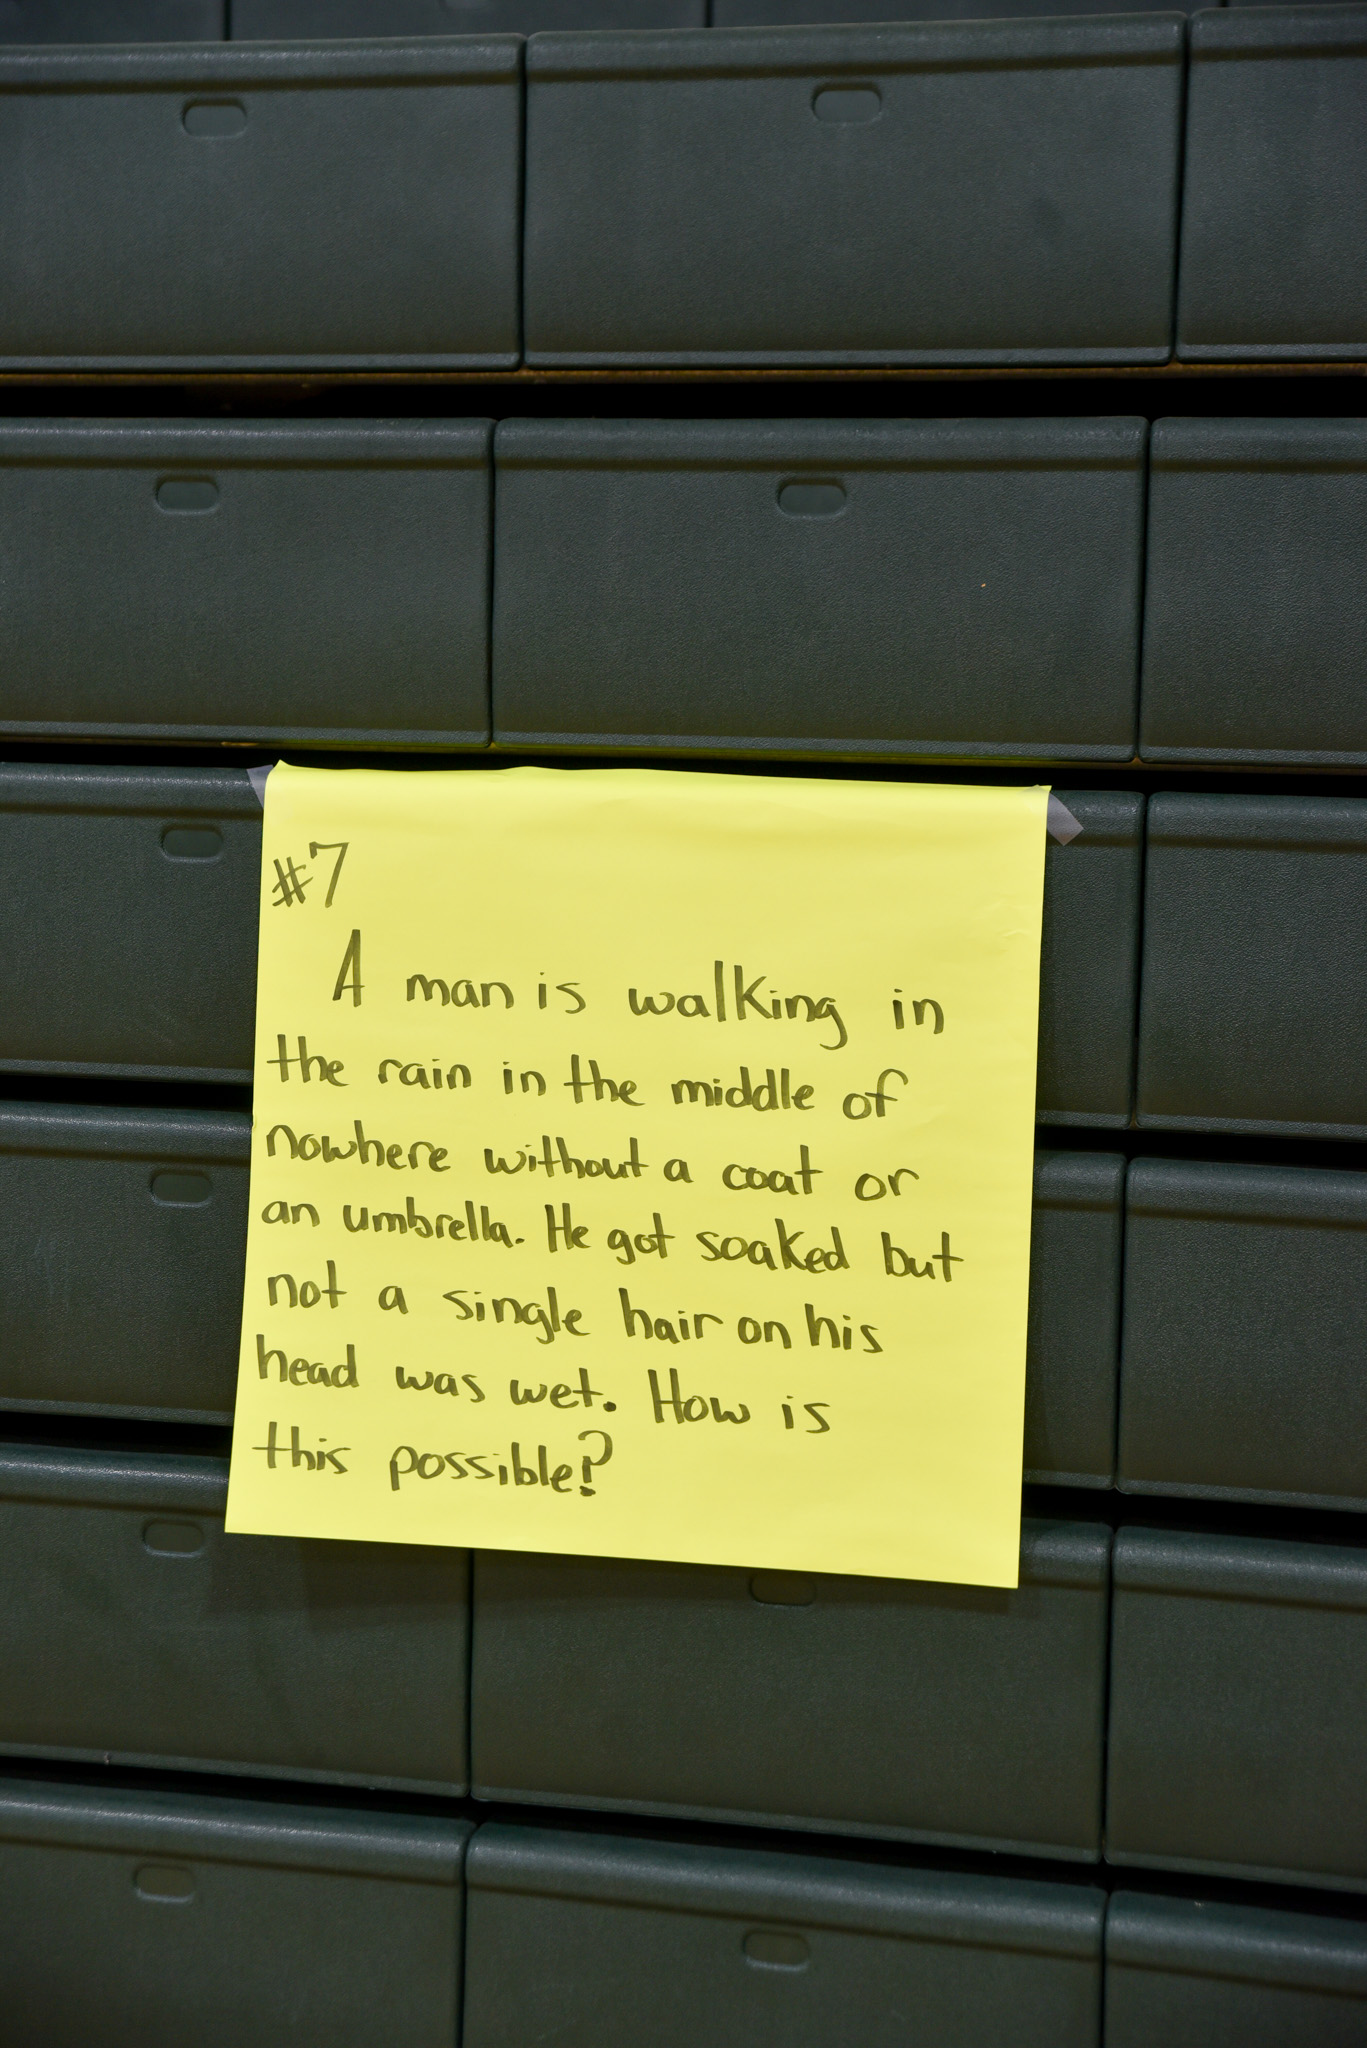 #7
A man is walking in
the rain in the middle of
nowhere without a coat or
an umbrella. He got soaked but
not a single hair on his
head was wet. How is
this possible?